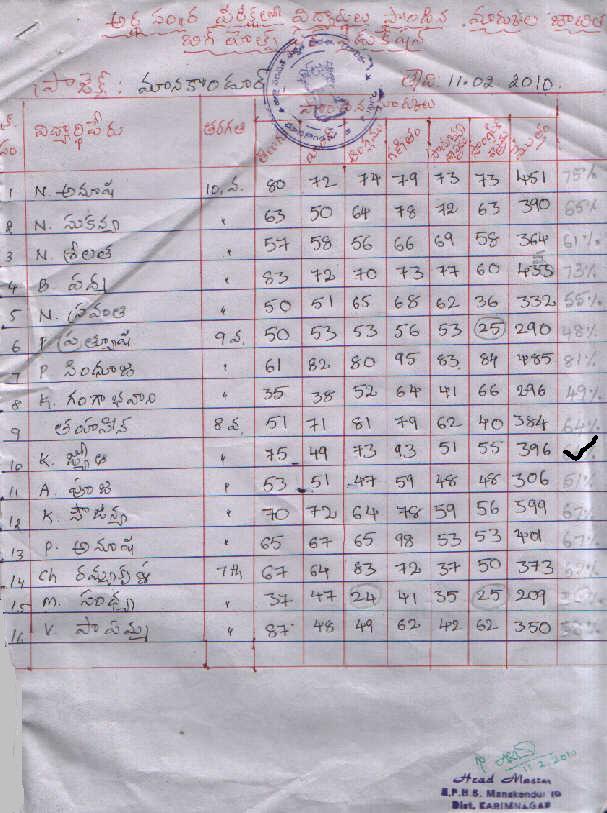 అర్ధ సంవత్సర పరీక్షలో విద్యార్థులు సాధించిన మార్కుల జాబితా
ప్రాజెక్ట్ : మానకొండూర్ తేది: 11.02 2010.
విద్యార్థి పేరు తరగతి తెలుగు ఆంగ్లము గణితం
1 N. అనూష 10.వ. 80 72 74 79 73 73 451 75%
2 N. సుకన్యా " 63 50 64 78 72 63 390 65%
3 N. శ్రీలత " 57 58 56 66 69 58 364 61%
4 B. " 83 72 70 73 77 60 433 73%
5 N. " 50 51 65 68 62 36 332 55%
6 ప్రత్యూష 9వ. 50 53 53 56 53 25 290 48%
7 P. సింధూజ " 61 82 80 95 83 84 485 81%
8 K. గంగాభవాని " 35 38 52 64 41 66 296 49%
9 8వ. 51 71 81 79 62 40 384 64%
10 K. " 75 49 73 93 51 55 396 ✓
11 A. పూజ " 53 51 47 59 48 48 306 51%
12 K. సౌజన్య " 70 72 64 78 59 56 399 67%
13 P. అనూష " 65 67 65 98 53 53 401 67%
14 Ch 7th 67 64 83 72 37 50 373 62%
15 M. సంధ్య " 37 47 24 41 35 25 209
16 V. " 87 48 49 62 42 62 350
11.2.2010
Head Master
Z.P.H.S. Manakondur
Dist. KARIMNAGAR